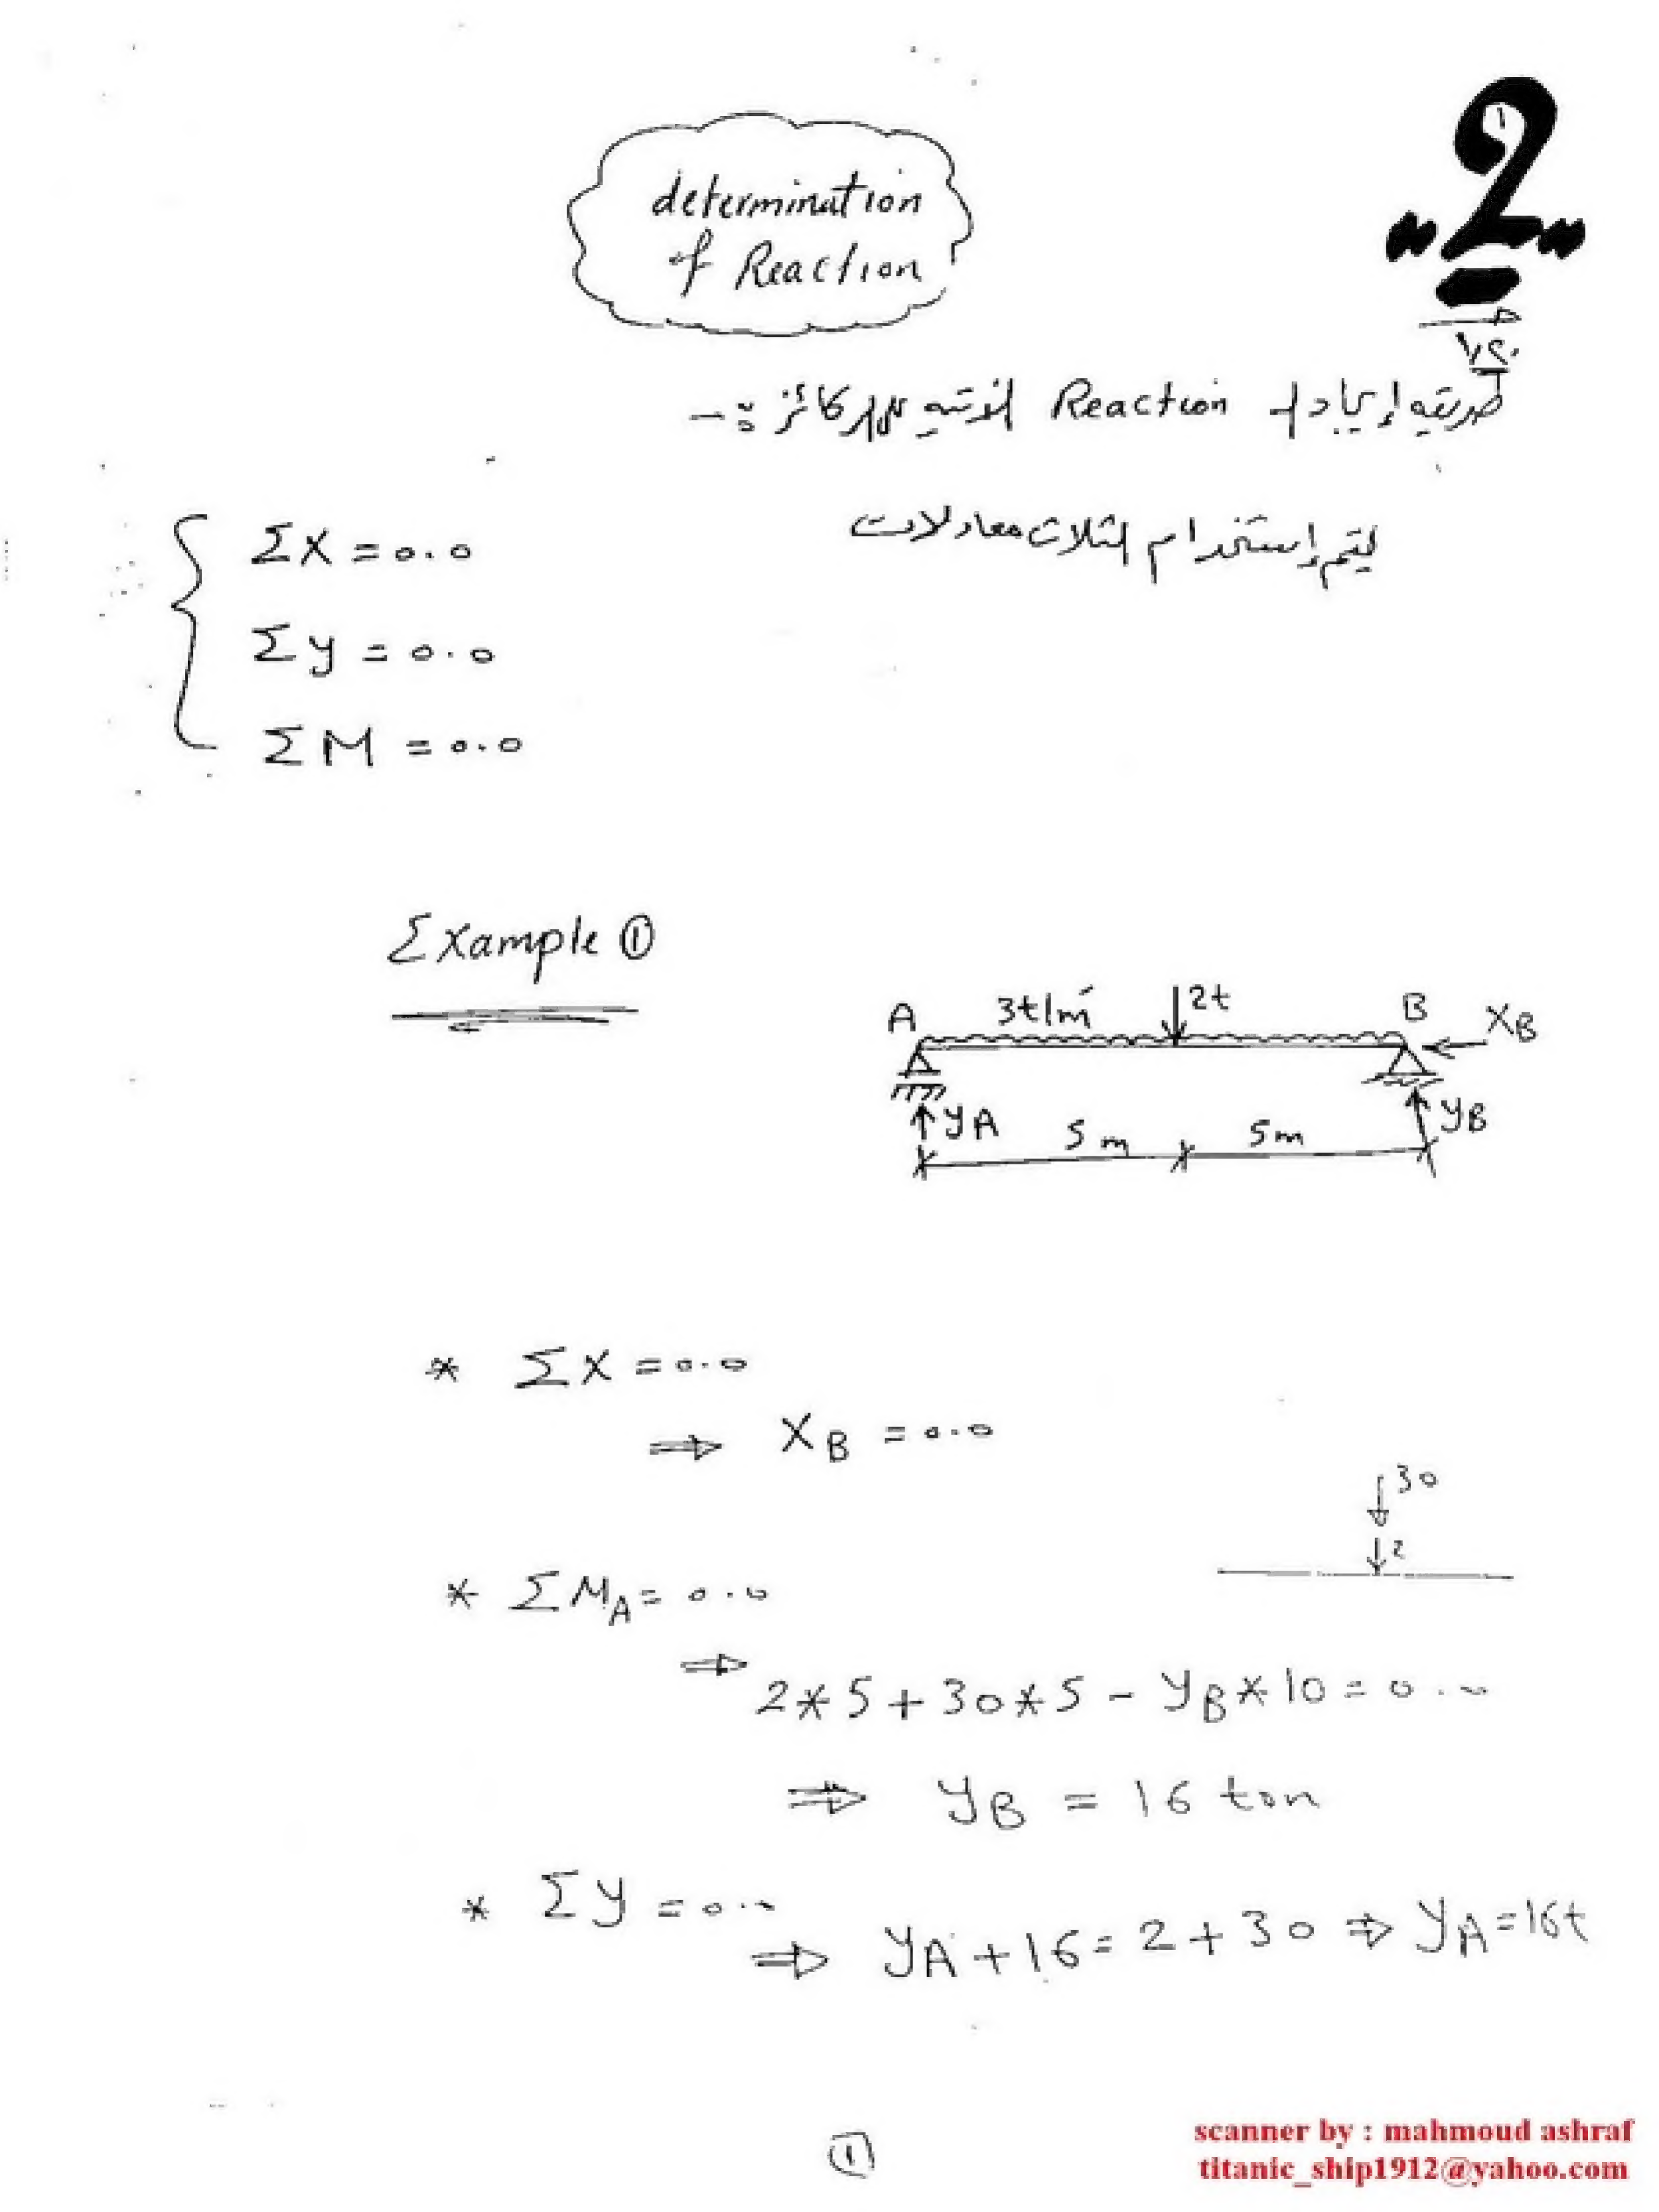 determination
of Reaction
"2"
طريقه إيجاد ال Reaction للركائز :-
يتم إستخدام الثلاث معادلات
ΣX = 0.0
Σy = 0.0
ΣM = 0.0
Example ①
A 3t/m' 2t B XB
yA 5m 5m yB
* ΣX = 0.0
⇒ XB = 0.0
30
2
* ΣMA = 0.0
⇒ 2*5+30*5 - yB*10 = 0.0
⇒ yB = 16 ton
* Σy = 0.0
⇒ yA+16 = 2+30 ⇒ yA=16t
①
scanner by : mahmoud ashraf
titanic_ship1912@yahoo.com